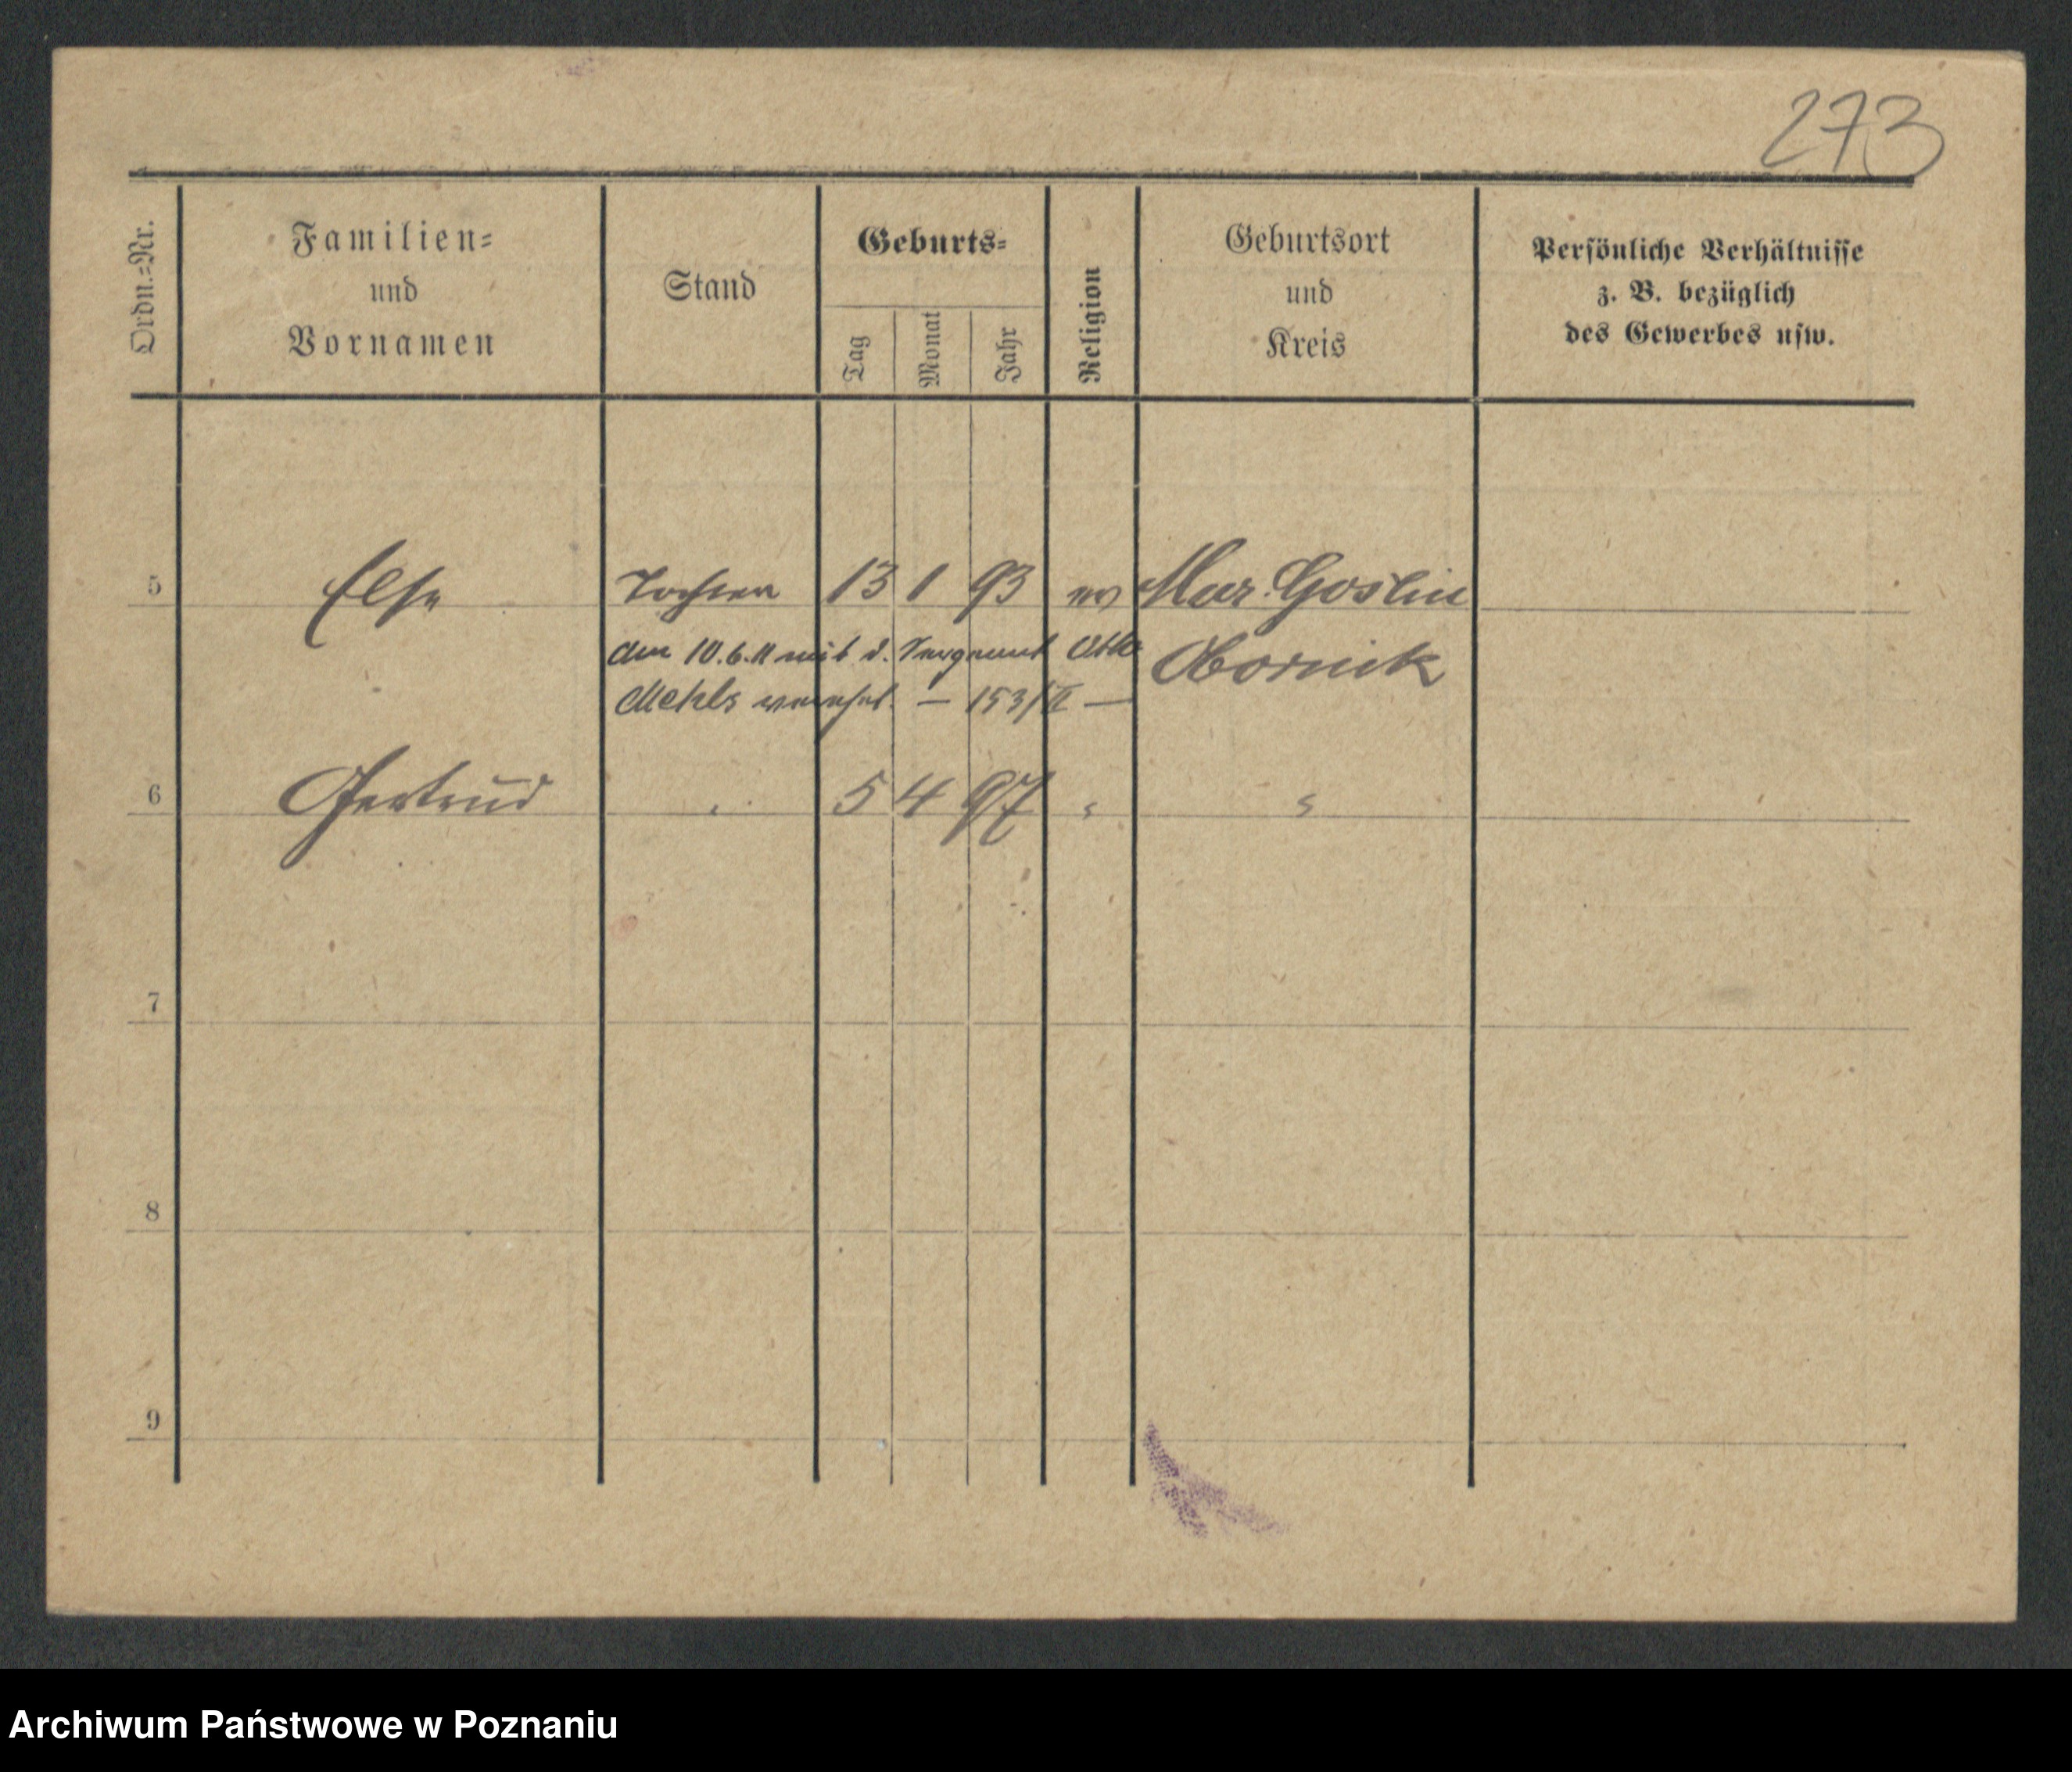 273
Ordn.-Nr.
Familien-
und
Vornamen
Stand
Geburts-
Tag
Monat
Jahr
Religion
Geburtsort
und
Kreis
Persönliche Verhältnisse
z. B. bezüglich
des Gewerbes usw.
5 Else Tochter 13 1 93 ev Mur. Goslin
am 10.6.11 mit d. Sergeant Otto Obornik
Mehls verehel. — 153/II —
6 Gertrud " 5 4 97 " "
7
8
9
Archiwum Państwowe w Poznaniu